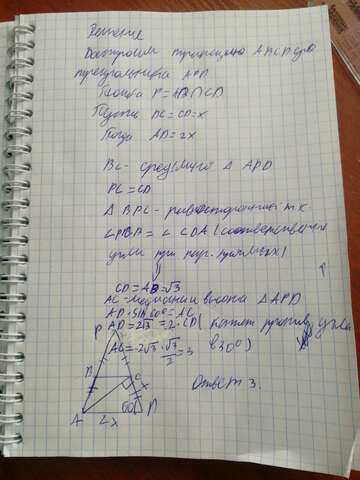 Решение
Достроим трапецию ABCD до
треугольника APD
Точка P = AB∩CD
Пусть BC = CD = x
Тогда AD = 2x
BC - сред. линия Δ APD
PC = CD
Δ BPC - равносторонний тк
∠PBA = ∠ CDA (соответственные
углы при пар. прямых)
⇓
CD = AB = √3
AC - медиана и высота ΔAPD
AD · sin 60° = AC
AD = 2√3 = 2 · CD (катет против угла
AC = 2√3 · √3/2 = 3 в 30°)
Ответ 3
P
B
C
x
60
A
2x
D